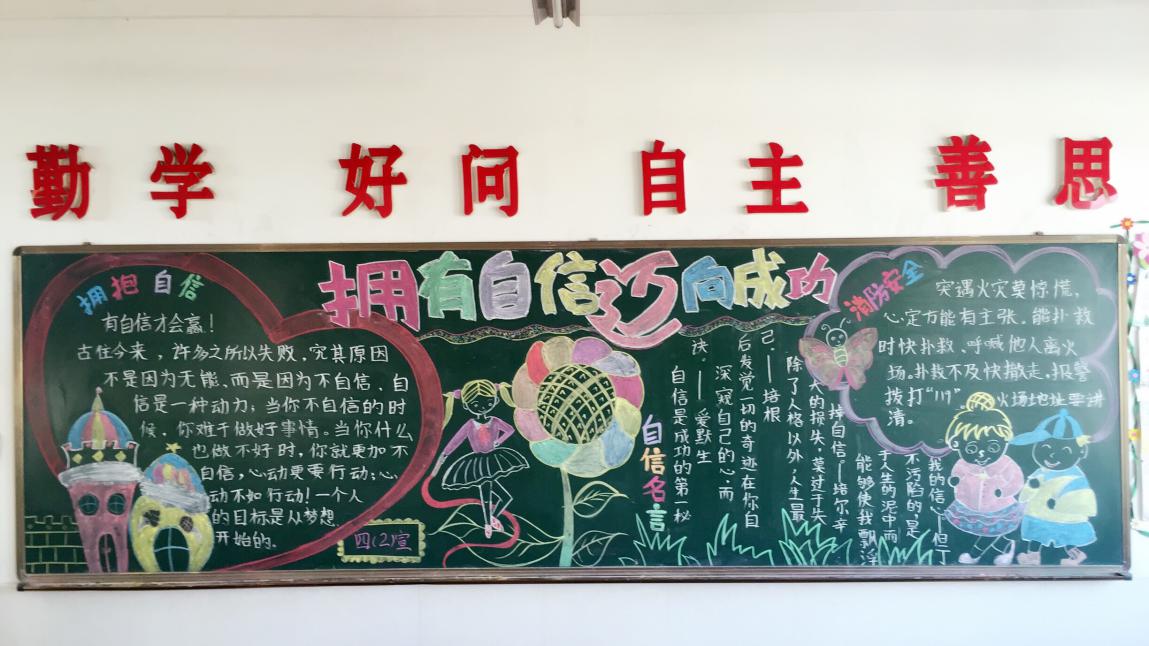 勤学 好问 自主 善思
拥有自信迈向成功
拥抱自信
有自信才会赢!
古往今来,许多之所以失败,究其原因
不是因为无能,而是因为不自信,自
信是一种动力;当你不自信的时
候,你难于做好事情。当你什么
也做不好时,你就更加不
自信,心动更要行动;心
动不如行动!一个人
的目标是从梦想
开始的.
四(2)宣
自信名言
自信是成功的第一秘
诀.——爱默生
深窥自己的心,而
后发觉一切的奇迹在你自
己.——培根
除了人格以外,人生最
大的损失,莫过于失
掉自信。——培尔辛
能够使我飘浮
于人生的泥中而
不污陷的,是
我的信心——但丁
消防安全
突遇火灾莫惊慌,
心定方能有主张。能扑救
时快扑救、呼喊他人离火
场。扑救不及快撤走,报警
拨打“119” 火场地址要讲
清。